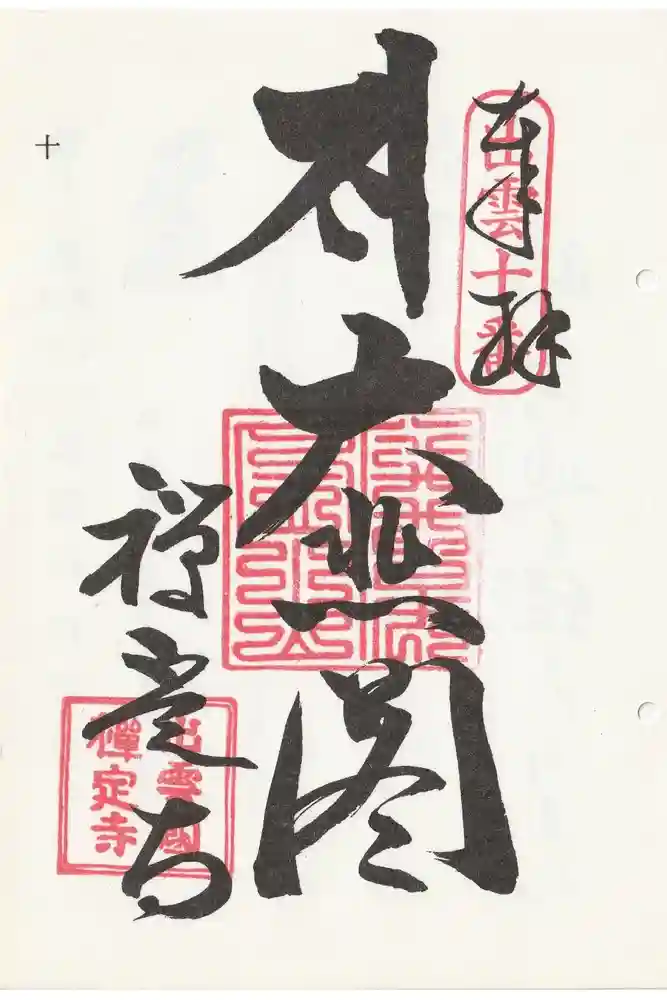 奉拝
出雲十番
大悲閣
禅定寺
出雲國
禪定寺
十